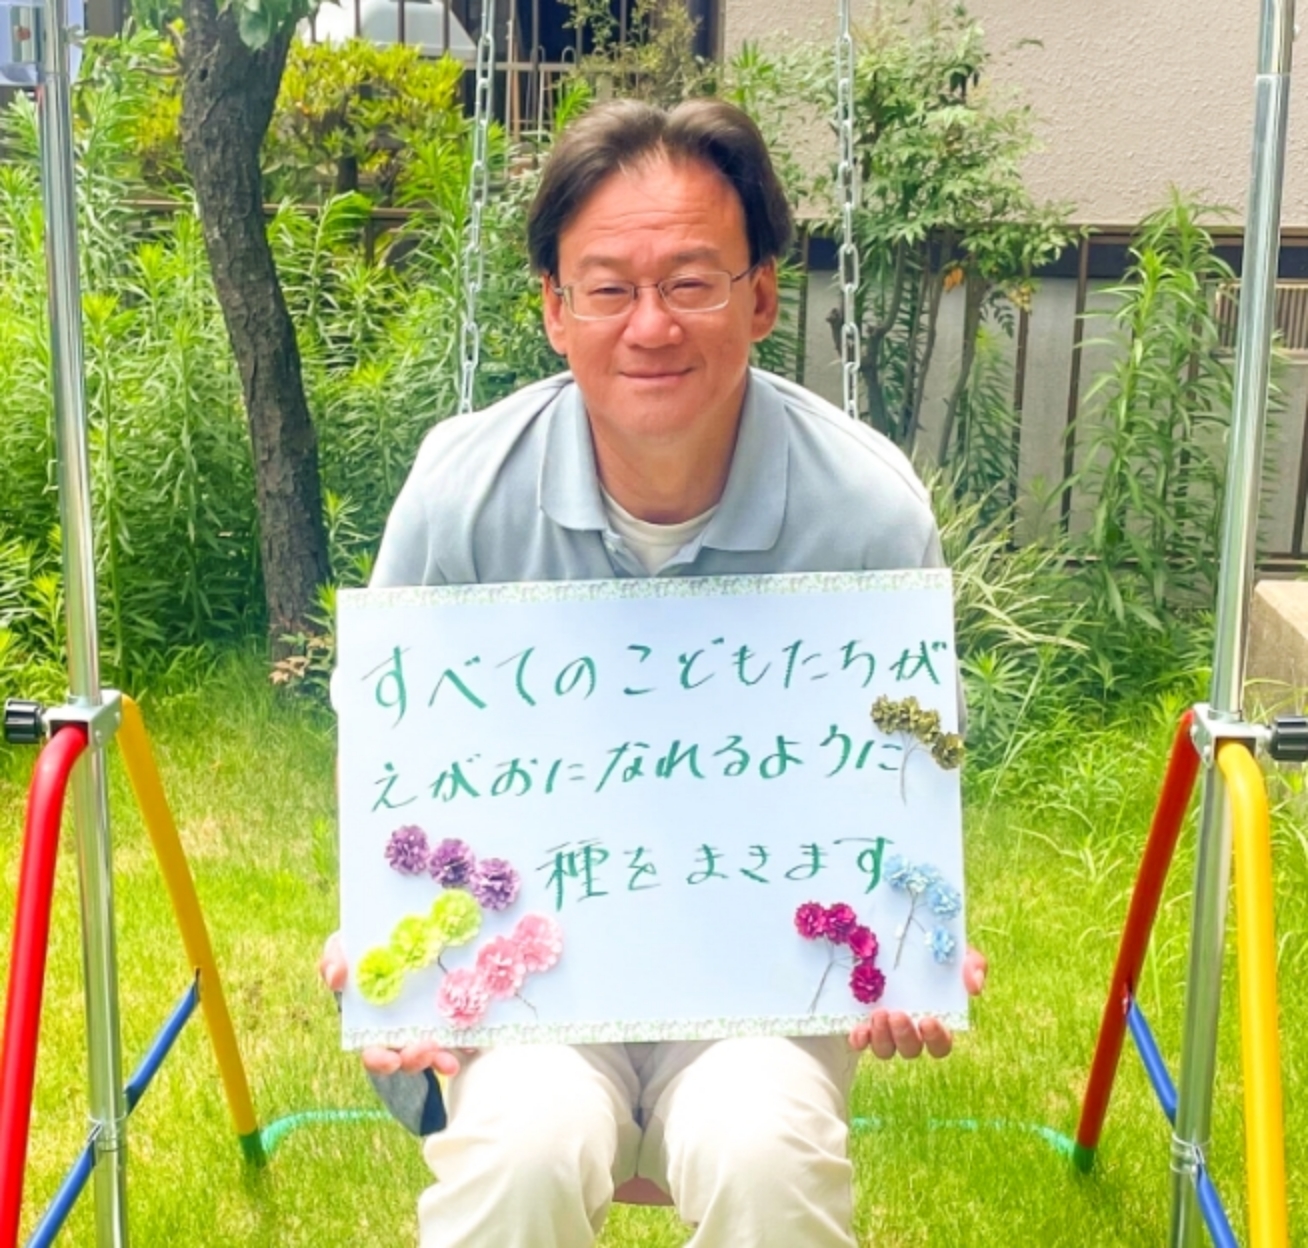 すべてのこどもたちが
えがおになれるように
種をまきます